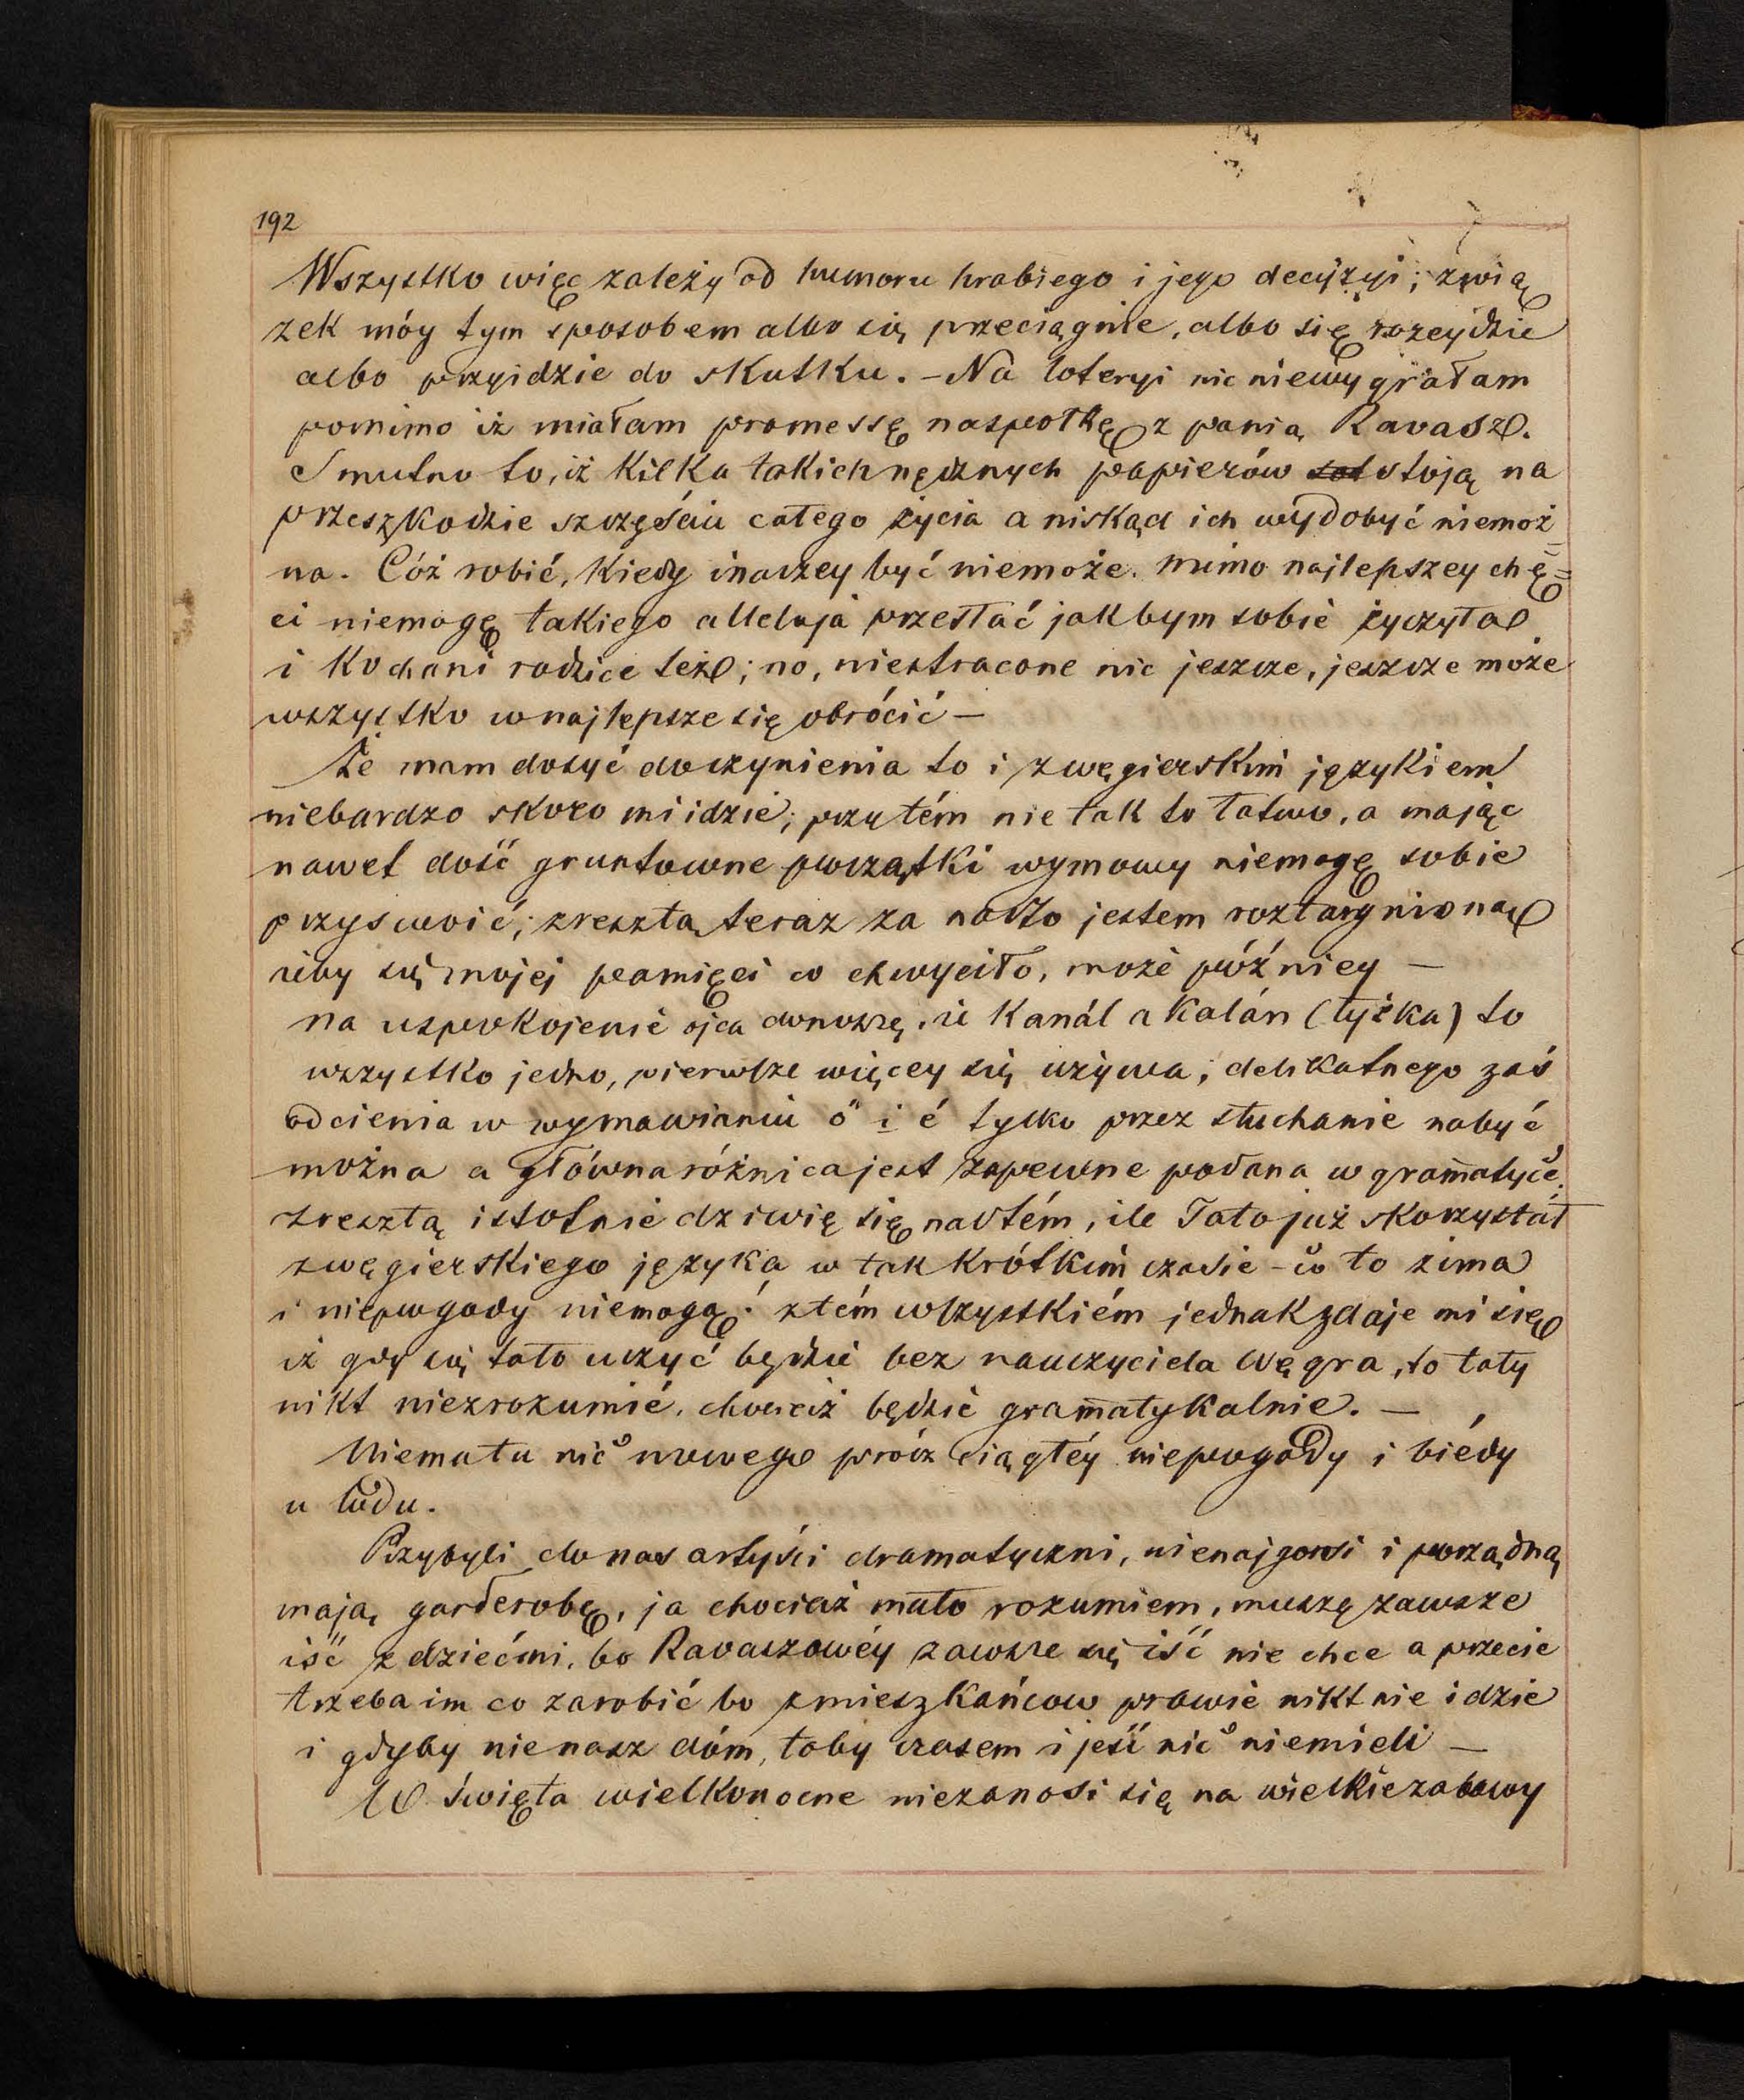 192
Wszystko więc zależy od humoru hrabiego i jego decyzyi; zwią
zek móy tym sposobem albo się przeciągnie, albo się rozeydzie
albo przyidzie do skutku. – Na loteryi nic niewygrałam
pomimo iż miałam promessę naspołkę z panią Ravasz.
Smutno to, iż kilka takich nędznych papierów stoją na
przeszkodzie szczęściu całego życia a niskąd ich wydobyć niemoż=
na. Cóż robić, kiedy inaczey być niemoże. mimo najlepszey chę=
ci niemogę takiego alleluja przesłać jakbym sobie życzyła
i kochani rodzice też; no, niestracone nic jeszcze, jeszcze może
wszystko wnajlepsze się obrócić –
Że mam dosyć doczynienia to i zwęgierskim językiem
niebardzo skoro mi idzie; przytém nie tak to łatwo, a mając
nawet dość gruntowne początki wymowy niemogę sobie
przyswoić; zresztą teraz za nadto jestem roztargniona
iżby się mojej pamięci co chwyciło, może późniey –
na uspokojenie ojca donoszę, iż Kanál a Kalán (łyżka) to
wszystko jedno, pierwsze więcey się używa; delikatnego zaś
odcienia w wymawianiu ö i é tylko przez słuchanie nabyć
można a główna różnica jest zapewne podana w gram̄atyce.
zresztą istotnie dziwię się nadtém, ile Tato już skorzystał
zwęgierskiego języka w tak krótkim czasie – co to zima
i niepogody niemogą! ztém wszystkiém jednak zdaje mi się
iż gdy się tato uczyć będzie bez nauczyciela Węgra, to taty
nikt niezrozumié, chociaż będzie gram̄atykalnie. –
Niema tu nic nowego prócz ciągłéy niepogody i biédy
u ludu.
Przybyli do nas artyści dramatyczni, nienajgorsi i porządną
mają garderobę, ja chociaż mało rozumiem, muszę zawsze
iść z dziećmi, bo Ravaszowéy zawsze się iść nie chce a przecie
trzeba im co zarobić bo zmieszkańców prawie nikt nie idzie
i gdyby nie nasz dóm, toby czasem i jeść nic niemieli –
W święta wielkonocne niezanosi się na wielkie zabawy